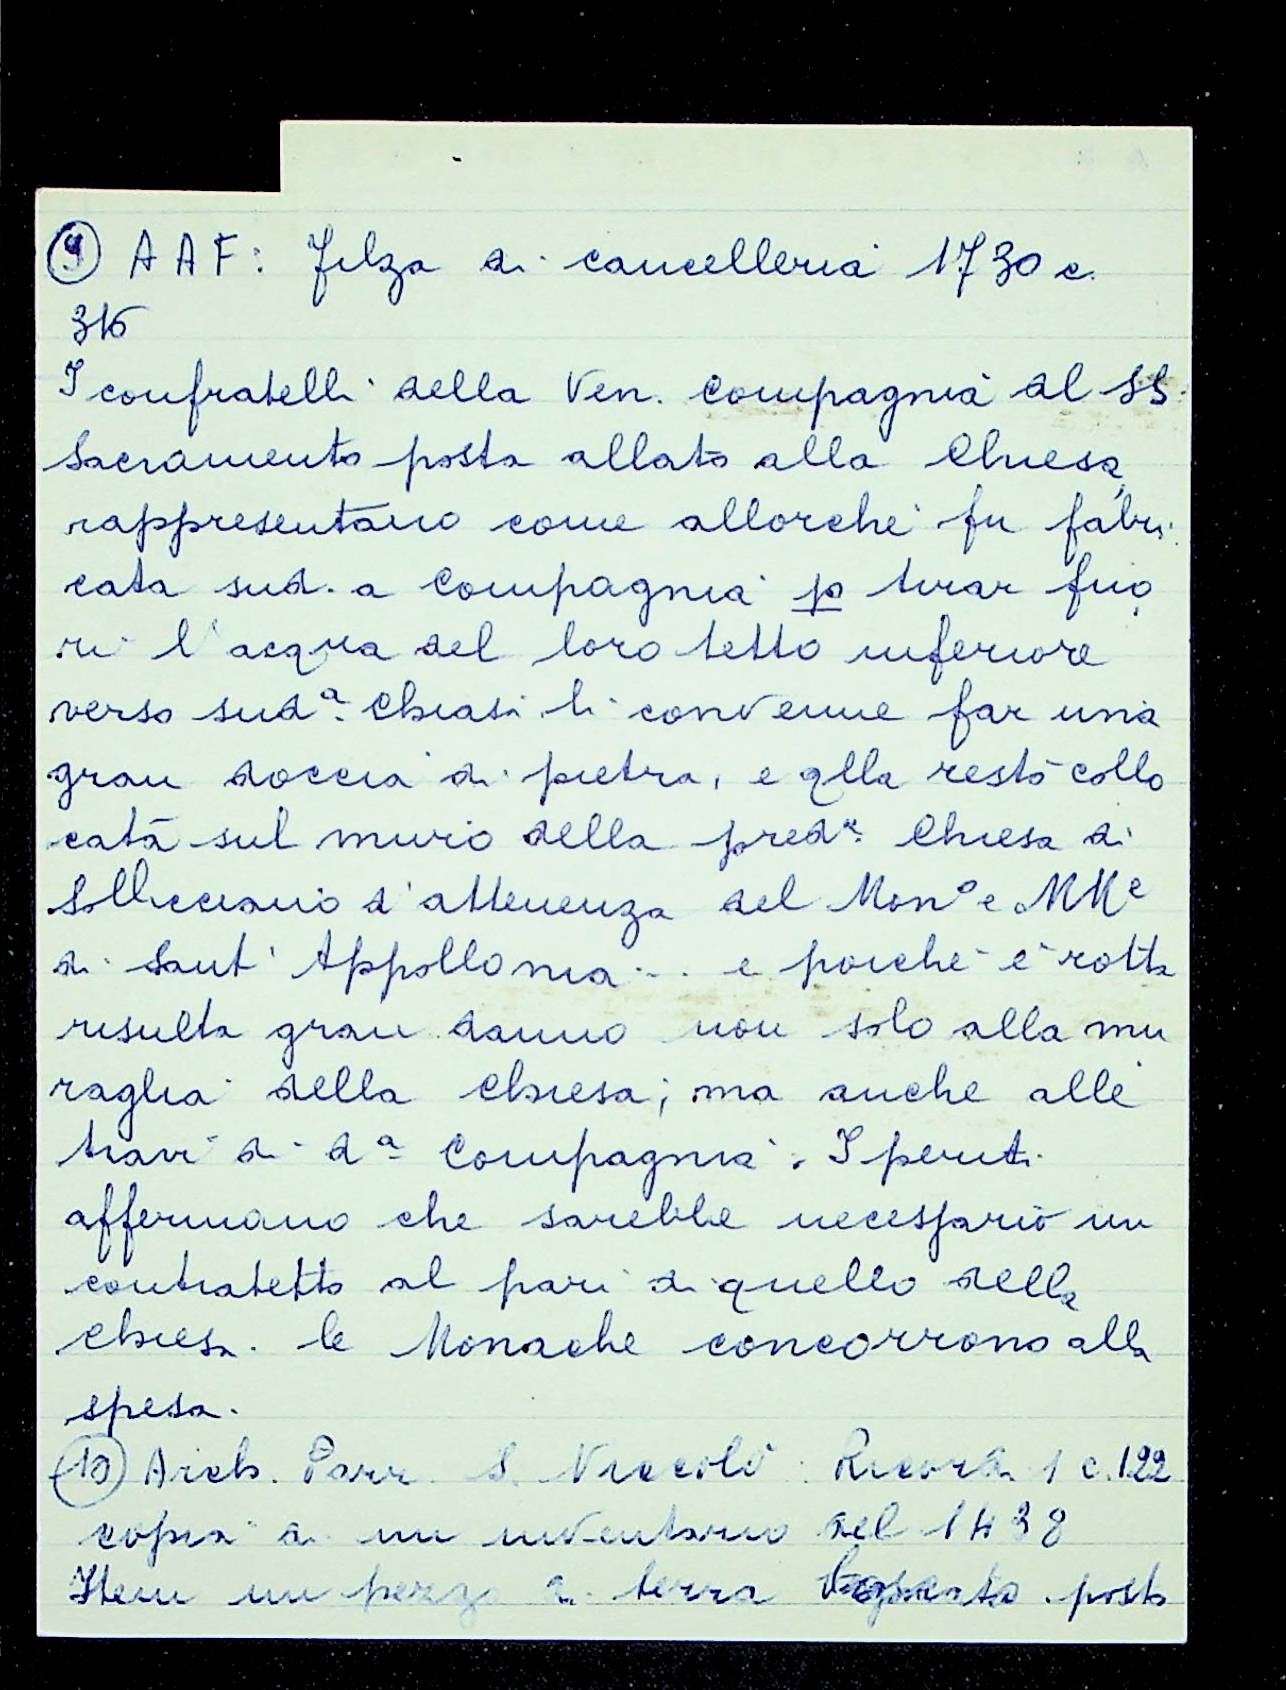 9 AAF: Filza di cancelleria 1730 c.
316
I confratelli della Ven. Compagnia del SS.
Sacramento posta allato alla Chiesa,
rappresentano come allorchè fu fabri
cata sud.a Compagnia p tirar fuo
ri l'acqua del loro tetto inferiore
verso sudª. Chiasi li convenne far una
gran doccia di pietra, e qlla restò collo
cata sul muro della predª. Chiesa di
Sollicciano d'attenenza del Monº e MMᵉ
di Sant' Appollonia ... e poichè è rotta
risulta gran danno non solo alla mu
raglia della Chiesa; ma anche alle
travi di dª Compagnia. I periti
affermano che sarebbe necessario un
contratetto al pari di quello della
Chiesa. le Monache concorrono alla
spesa.
10 Arch. Parr. S. Niccolò: Ricord. 1 c. 122
copia di un inventario del 1438
Item un pezzo di terra posto